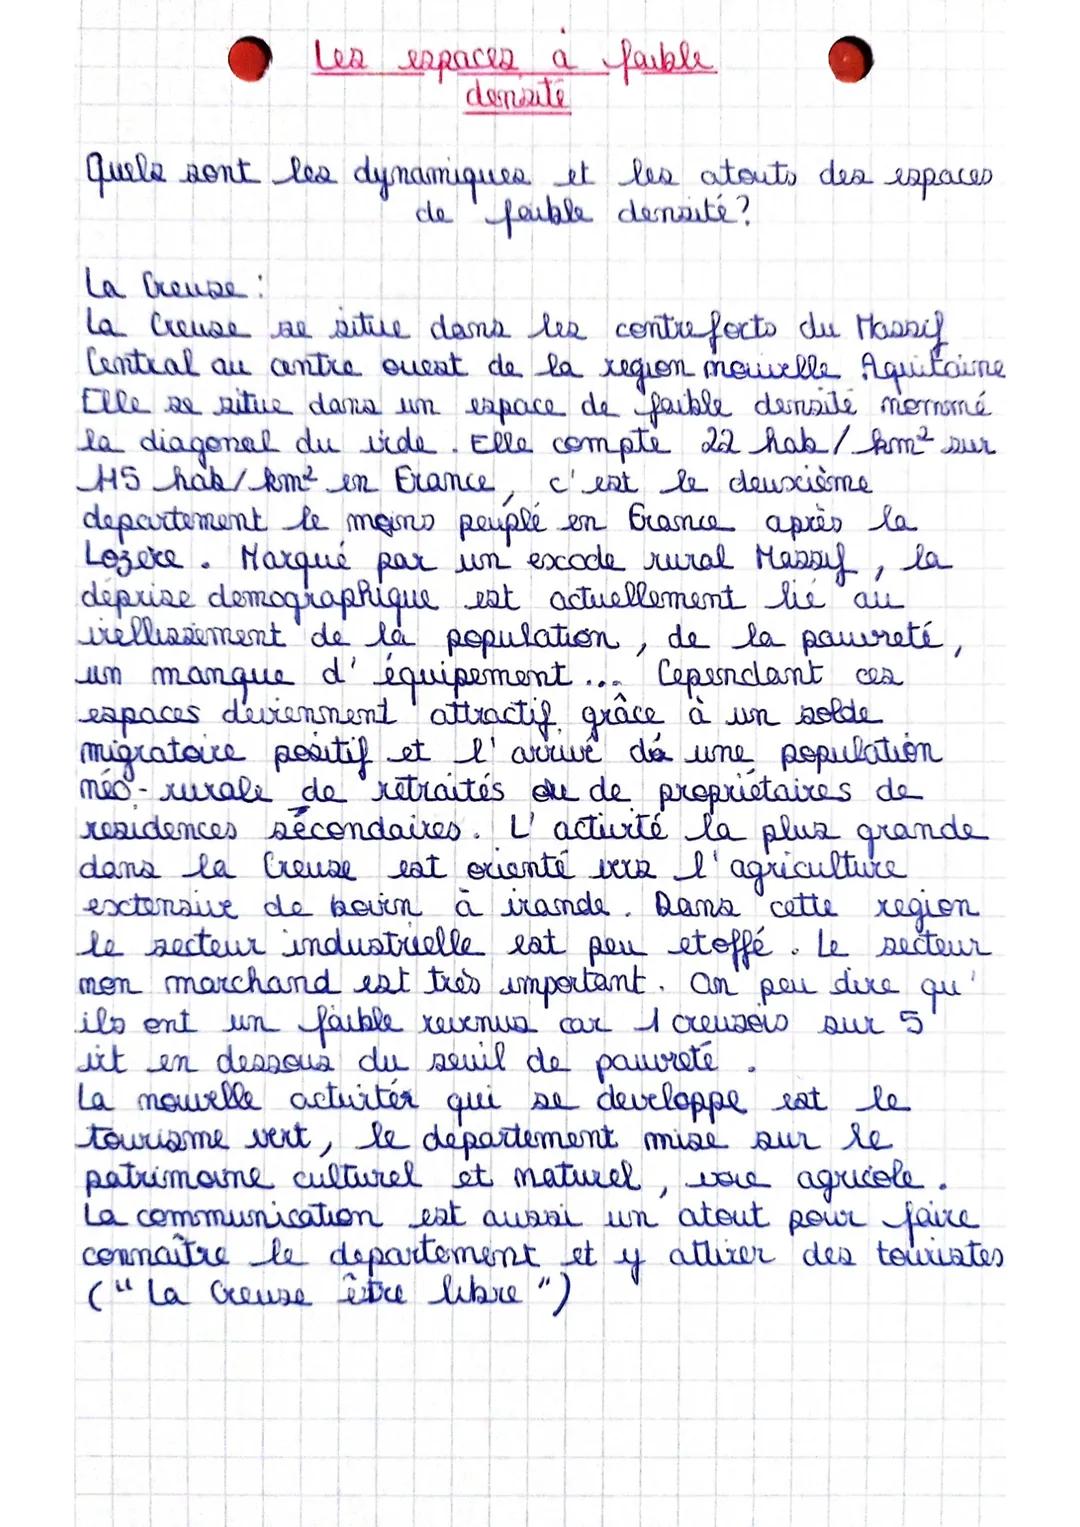 Les espaces à faible
densité
Quels sont les dynamiques et les atouts des espaces
de faible densité?
La Creuse :
La Creuse se situe dans les contreforts du Massif
Central au centre ouest de la region nouvelle Aquitaine
Elle se situe dans un espace de faible densité nommé
la diagonal du vide. Elle compte 22 hab/km² sur
115 hab/km² en France, c'est le deuxième
departement le moins peuplé en France après la
Lozere. Marqué par un exode rural Massif, la
déprise demographique est actuellement lié au
viellissement de la population, de la pauvreté,
un manque d'équipement... Cependant ces
espaces deviennent attractif grâce à un solde
migratoire positif et l'arrivé de une population
néo-rurale de retraités ou de propriétaires de
residences secondaires. L'activité la plus grande
dans la Creuse est orienté vers l'agriculture
extensive de bovin à viande. Dans cette region
le secteur industrielle est peu etoffé. Le secteur
non marchand est très important. On peu dire qu'
ils ont un faible revenus car 1 creusois sur 5
vit en dessous du seuil de pauvreté.
La nouvelle activitér qui se developpe est le
tourisme vert, le departement mise sur le
patrimoine culturel et naturel, voie agricole.
La communication est aussi un atout pour faire
connaître le departement et y attirer des touristes
("La Creuse être libre")